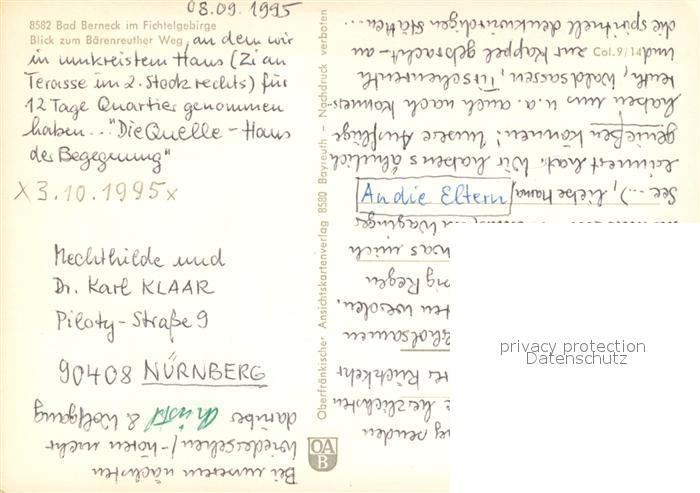 08.09.1995
8582 Bad Berneck im Fichtelgebirge
Blick zum Bärenreuther Weg, an dem wir
in umkreistem Haus (Zi an
Terasse im 2. Stock rechts) für
12 Tage Quartier genommen
haben... "Die Quelle - Haus
der Begegnung"
X 3.10.1995 x
Mechthilde und
Dr. Karl KLAAR
Piloty-Straße 9
90408 NÜRNBERG
Oberfränkischer Ansichtskartenverlag 8580 Bayreuth - Nachdruck verboten
Col.9/14
OA
B
An die Eltern
senden
herzlichsten
Rückkehr
ten werden.
Regen
was mich
Waginger
See ...), liebe Mama,
erinnert hat. Wir haben's ähnlich
genießen können! Unsere Ausflüge
haben uns u.a. auch nach Konners-
reuth, Waldsassen, Tirschenreuth
und zur Kappel gebracht - an
die spirituell denkwürdigen Stätten...
Bei unserem nächsten
Wiedersehen/-hören mehr
darüber Christl & Wolfgang
privacy protection
Datenschutz